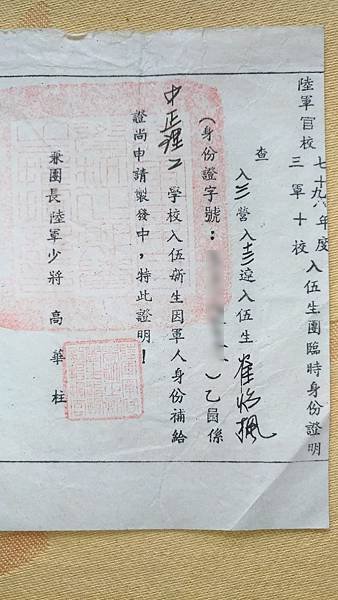 陸軍官校七十九年度入伍生團臨時身份證明
三軍十校
查
入三營入連入伍生崔
(身份證字號: )乙員係
中正理工學校入伍新生因軍人身份補給
證尚申請製發中,特此證明!
兼團長陸軍少將高華柱